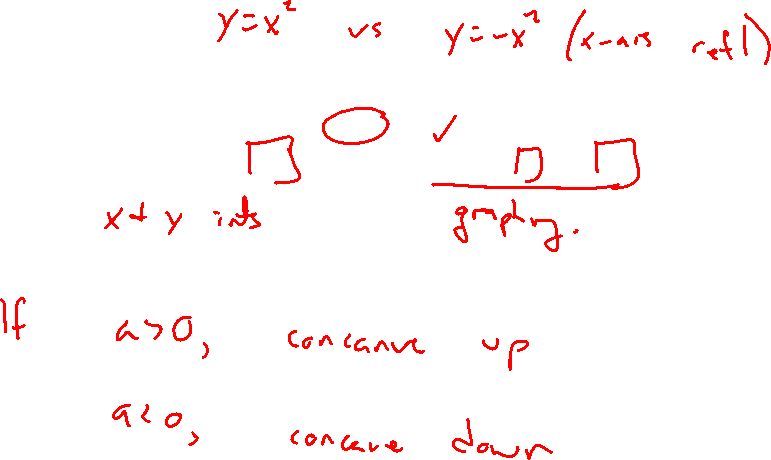 y=x² vs y=-x² (x-axis refl)
✓
x + y ints graphing.
If a>0, concanve up
a<0, concave down